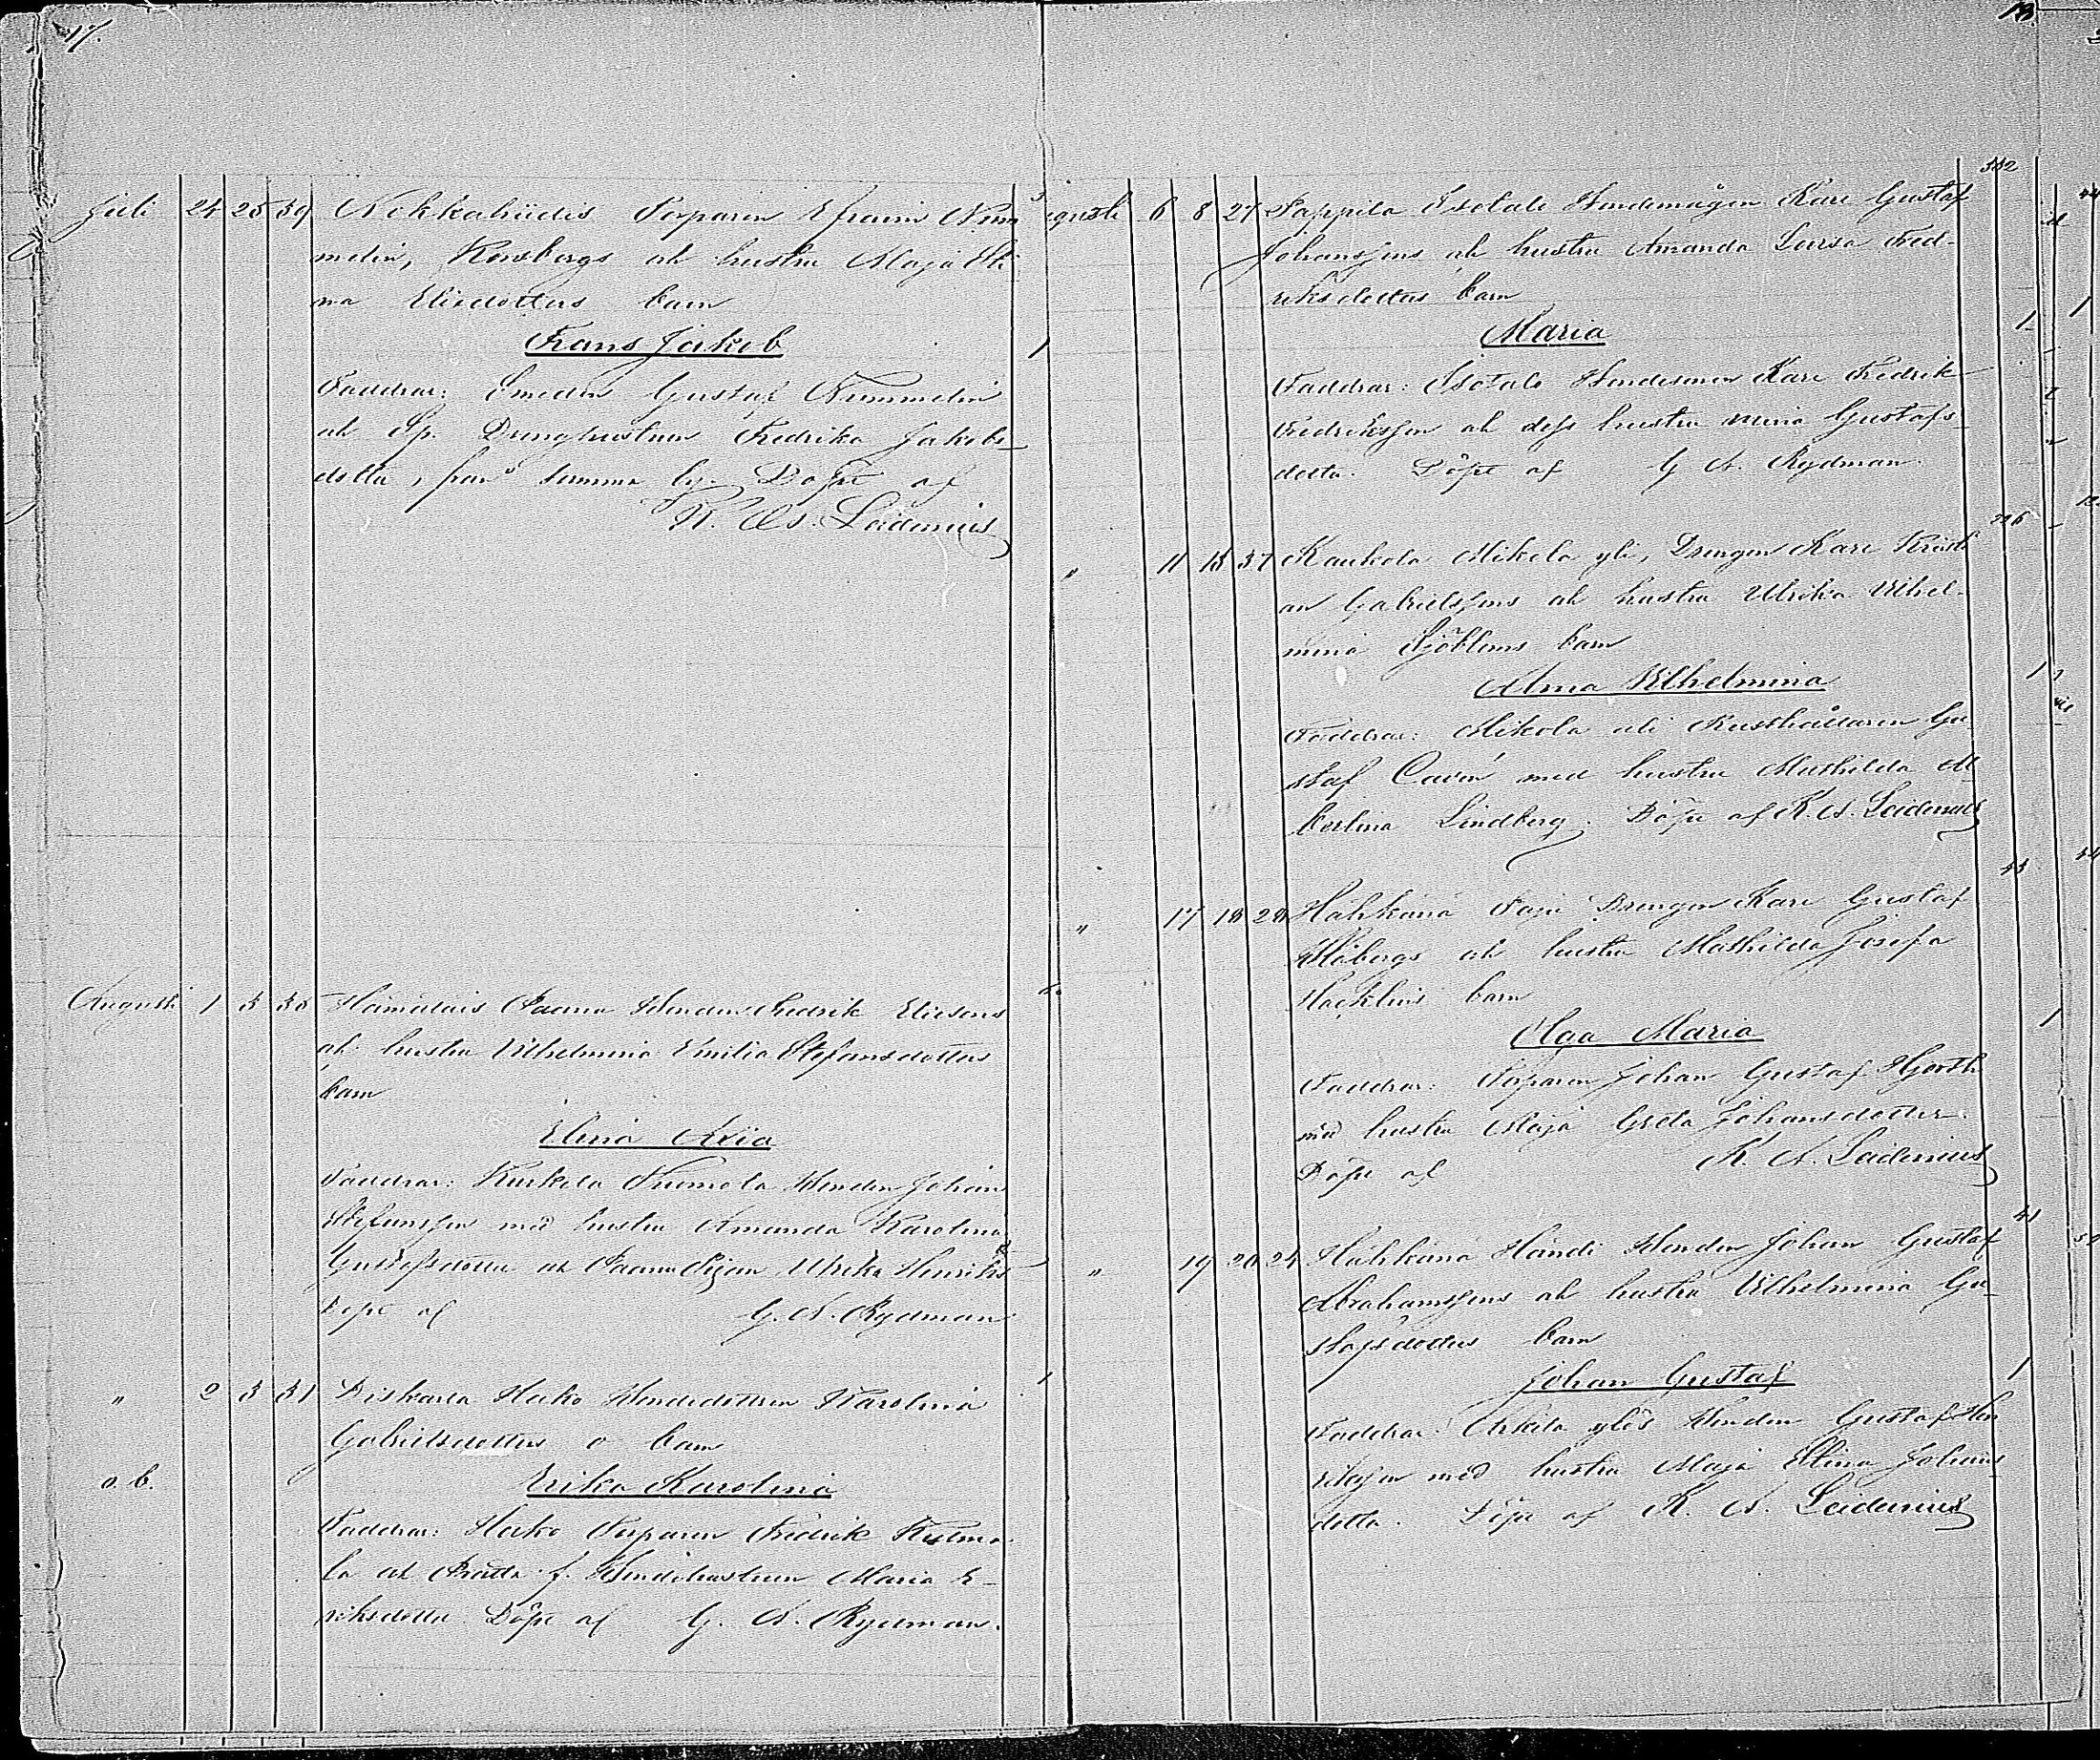 17.
Juli 24 25 39 Nokkahiidis Torparen Efraim Num
melin, Kronbergs och hustru Maja Sti
na Eliedotters barn
Frans Jakob
Faddrar: Smeden Gustaf Nummelin
och Sp. Drenghustrun Fredrika Jakobs-
dotter, från samma by. Döpt af
K. A. Leidenius
Augusti 1 3 Paavu Bonden Fredrik Eliesons
och hustru Vilhelmina Emilia Stefansdotters
barn
Elina Axia
Faddrar: Kurkela Tuomola Bonden Johan
Stefansson med hustru Amanda Karolina
Gustafsdotter och Paavu Pigan Ulrika Henriks
Döpt af G. A. Rydman
" 2 3 31 Heiko Bondedottren Karolina
Gabrielsdotters o barn
o. b.
Erika Karolina
Faddrar: Heiko Torparen Fredrik Kulma
la och f. Bondehustrun Maria E-
riksdotter. Döpt af G. A. Rydman.
18.
332
Augusti 6 8 27 Pappila Isotalo Bondemågen Karl Gustaf
Johanssons och hustru Amanda Lovisa Fred-
riksdotters barn
Maria
1
Faddrar: Isotalo Bondesonen Karl Fredrik
Fredriksson och dess hustru Maria Gustafs-
dotter. Döpt af G A. Rydman
" 11 15 37 Kaukola Mikola yli, Drengen Karl Kristi
an Gabrielssons och hustru Ulrika Vilhel-
mina Sjöbloms barn
Alma Vilhelmina
1
Faddrar: Mikola ali Rusthållaren Gu
staf Cavén med hustru Mathilda Al
bertina Lindberg. Döpt af K. A. Leidenius
" 17 18 28 Hahkana Drengen Karl Gustaf
Blåbergs och hustru Mathilda Josefa
Hacklins barn
Olga Maria
1
Faddrar: Torparen Johan Gustaf Hjorth
med hustru Maja Greta Johansdotter.
Döpt af K. A. Leidenius
41
" 19 20 24 Hahkana Händi Bonden Johan Gustaf
Abrahamssons och hustru Vilhelmina Gu-
stafsdotters barn
Johan Gustaf
1
Faddrar: Arkela Bonden Gustaf Hen
riksson med hustru Maja Ellina Johans-
dotter. Döpt af K. A. Leidenius